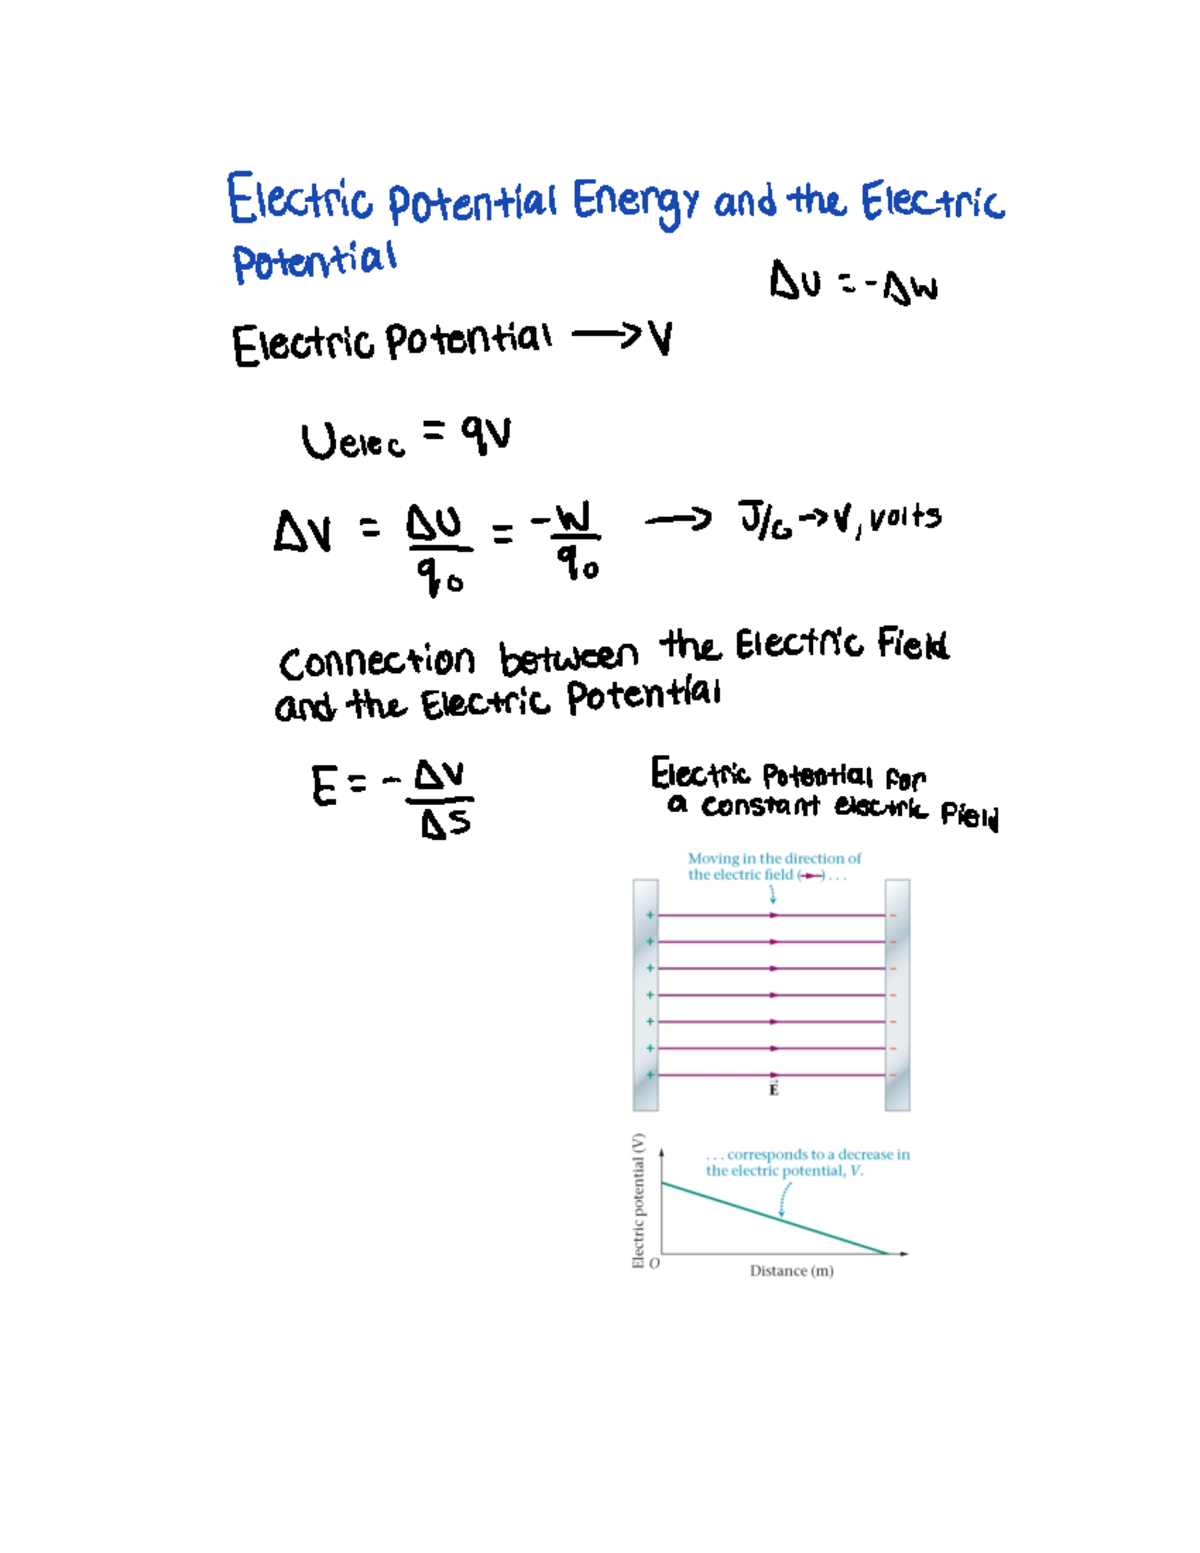 Electric Potential Energy and the Electric
Potential
ΔU = -ΔW
Electric Potential → V
Uelec = qV
ΔV = ΔU/q₀ = -W/q₀ → J/C → V, volts
Connection between the Electric Field
and the Electric Potential
E = - ΔV/ΔS
Electric Potential for
a constant electric field
Moving in the direction of
the electric field (→) . . .
+ −
+ −
+ −
+ −
+ −
+ −
+ −
E
Electric potential (V)
. . . corresponds to a decrease in
the electric potential, V.
O
Distance (m)